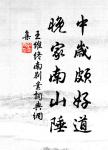 中歲頗好道
晚家南山陲
王維終南別業詞典網
集